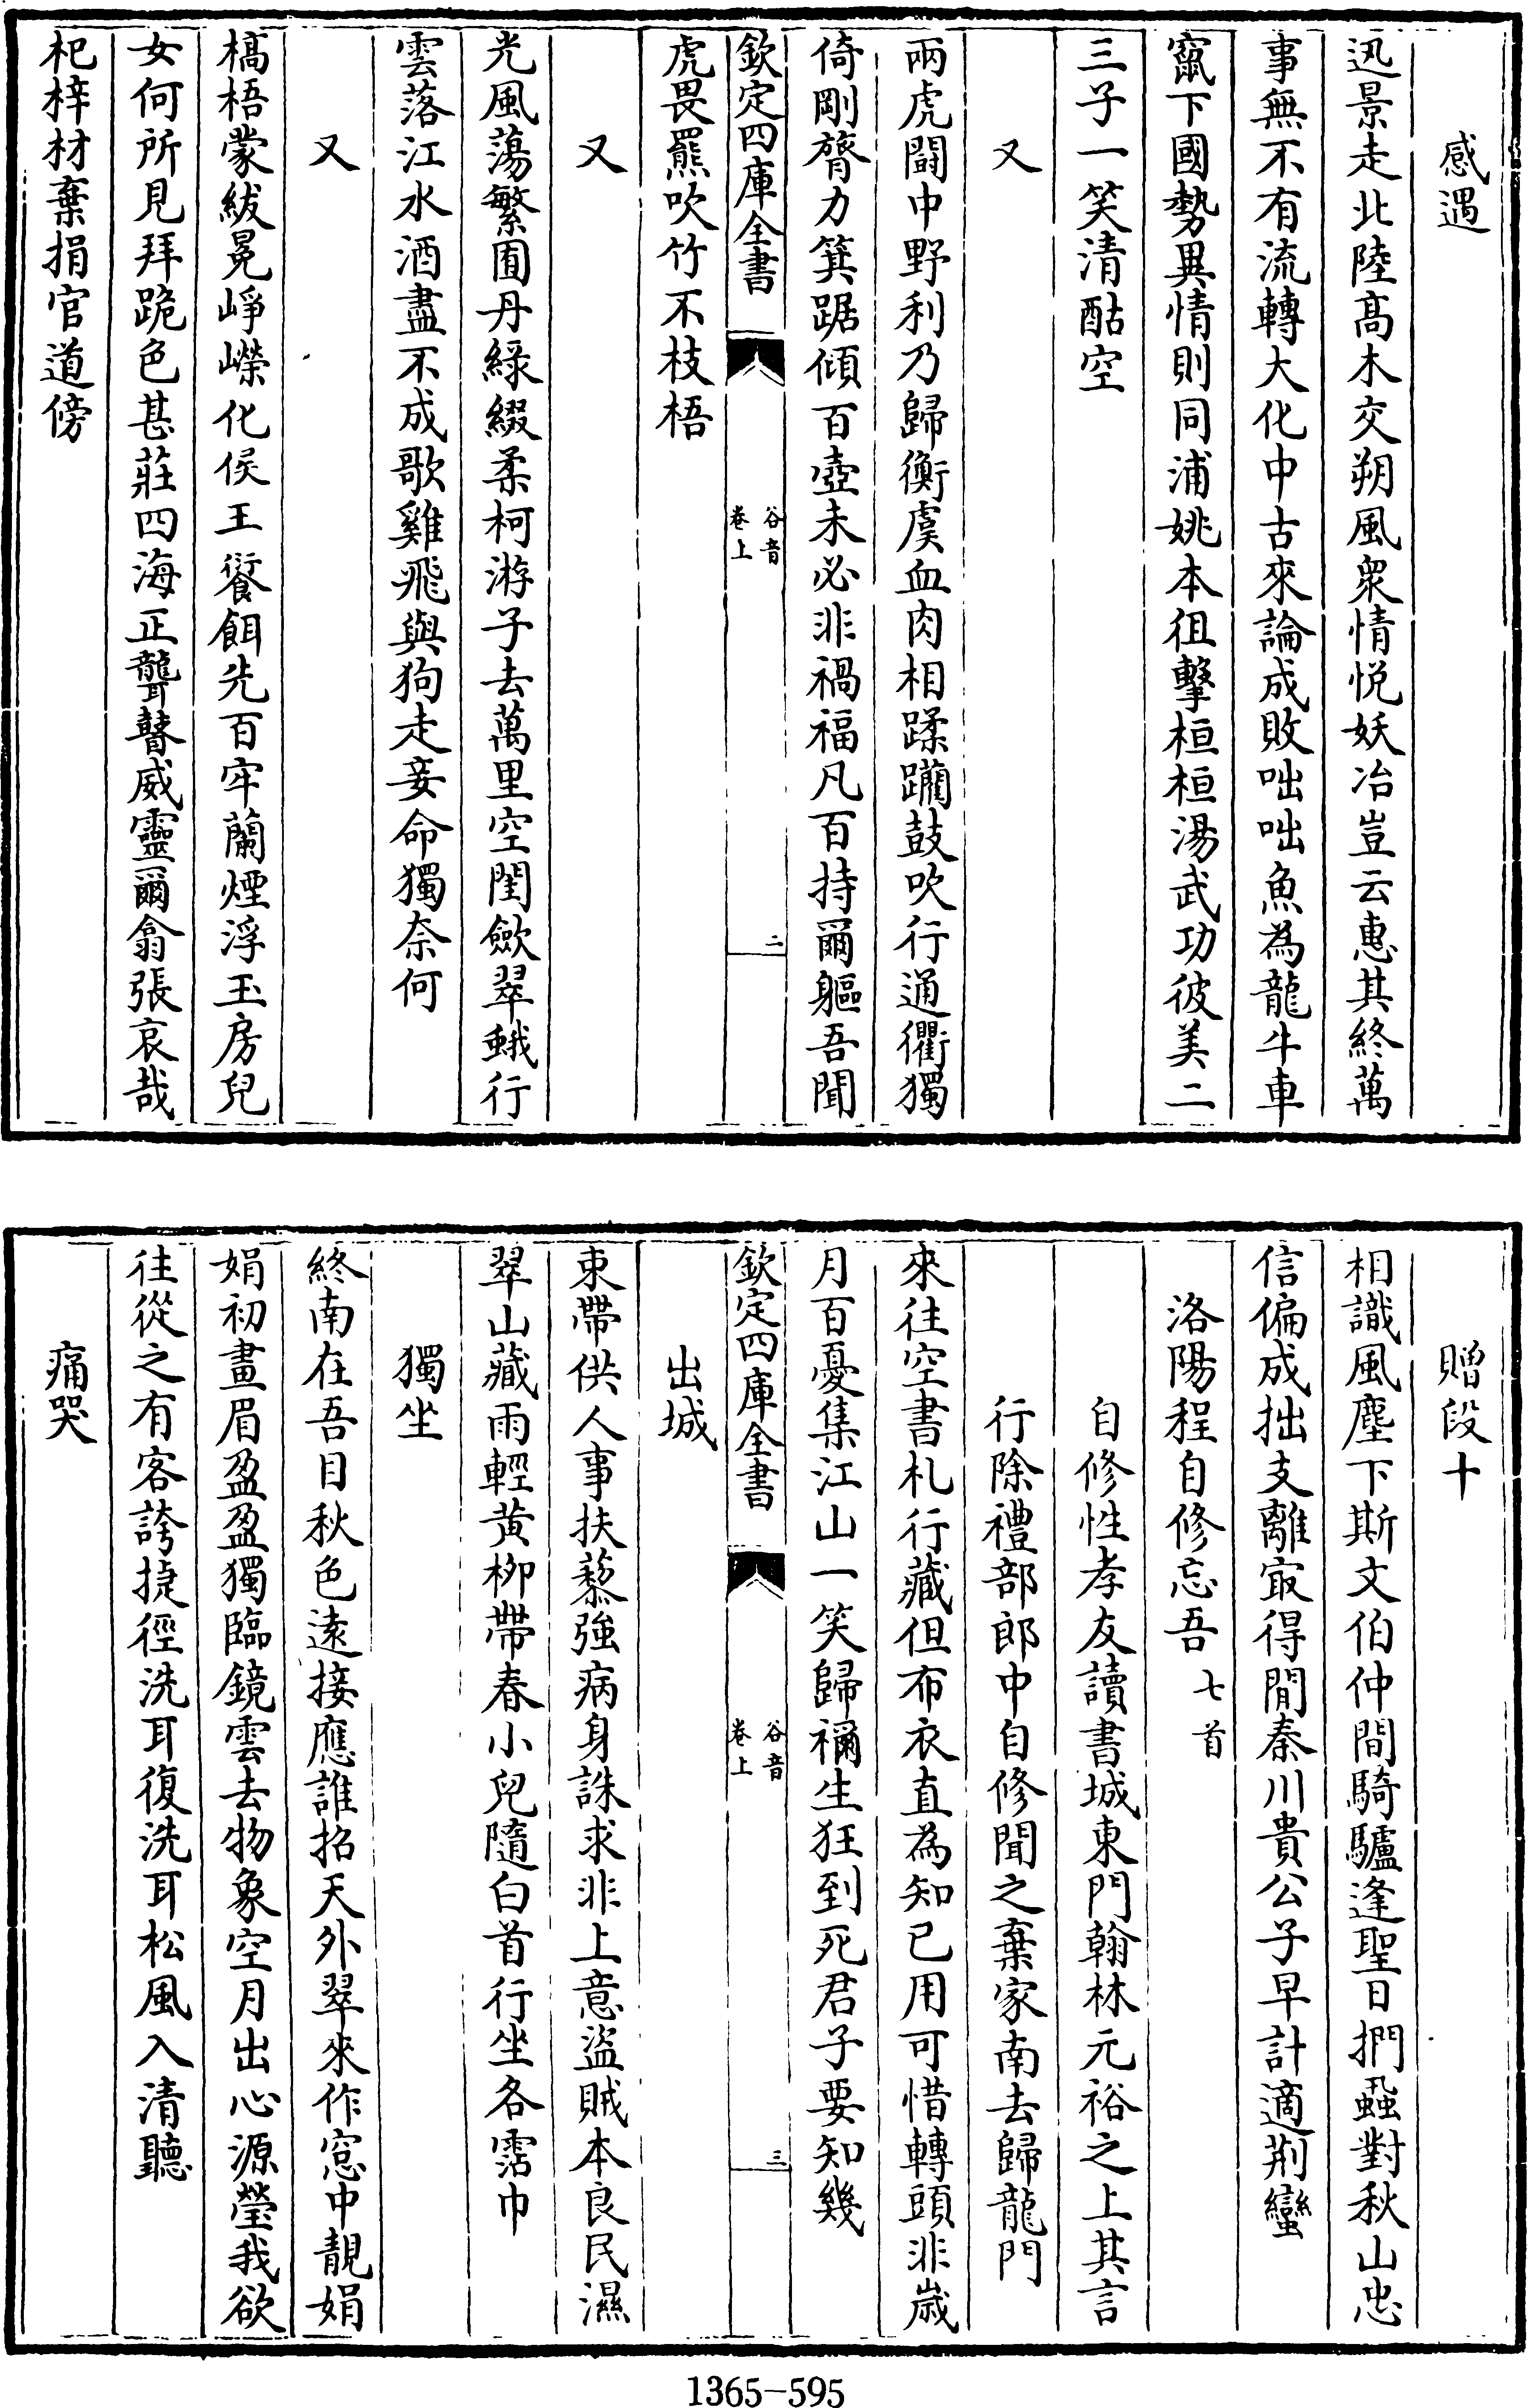 感遇
迅景走北陸高木交朔風衆情悦妖冶豈云惠其終萬
事無不有流轉大化中古來論成敗咄咄魚為龍牛車
竄下國勢異情則同浦姚本徂擊桓桓湯武功彼美二
三子一笑清酤空
又
兩虎鬬中野利乃歸衡虞血肉相蹂躪鼓吹行通衢獨
倚剛膂力箕踞傾百壺未必非禍福凡百持爾軀吾聞
欽定四庫全書
谷音
卷上
二
虎畏羆吹竹不枝梧
又
光風蕩繁囿丹緑綴柔柯游子去萬里空閨歛翠蛾行
雲落江水酒盡不成歌雞飛與狗走妾命獨奈何
又
槁梧蒙紱冕崢嶸化侯王餈餌先百牢蘭煙浮玉房兒
女何所見拜跪色甚莊四海正聾瞽威靈爾翕張哀哉
杞梓材棄捐官道傍
贈段十
相識風塵下斯文伯仲間騎驢逢聖日捫蝨對秋山忠
信偏成拙支離㝡得閒秦川貴公子早計適荆蠻
洛陽程自修忘吾七首
自修性孝友讀書城東門翰林元裕之上其言
行除禮部郎中自修聞之棄家南去歸龍門
來往空書札行藏但布衣直為知已用可惜轉頭非嵗
月百憂集江山一笑歸禰生狂到死君子要知幾
欽定四庫全書
谷音
卷上
三
出城
束帶供人事扶藜強病身誅求非上意盜賊本良民濕
翠山藏雨輕黄柳帶春小兒隨白首行坐各霑巾
獨坐
終南在吾目秋色遠接應誰招天外翠來作窓中靚娟
娟初畫眉盈盈獨臨鏡雲去物象空月出心源瑩我欲
往從之有客誇捷徑洗耳復洗耳松風入清聽
痛哭
1365-595